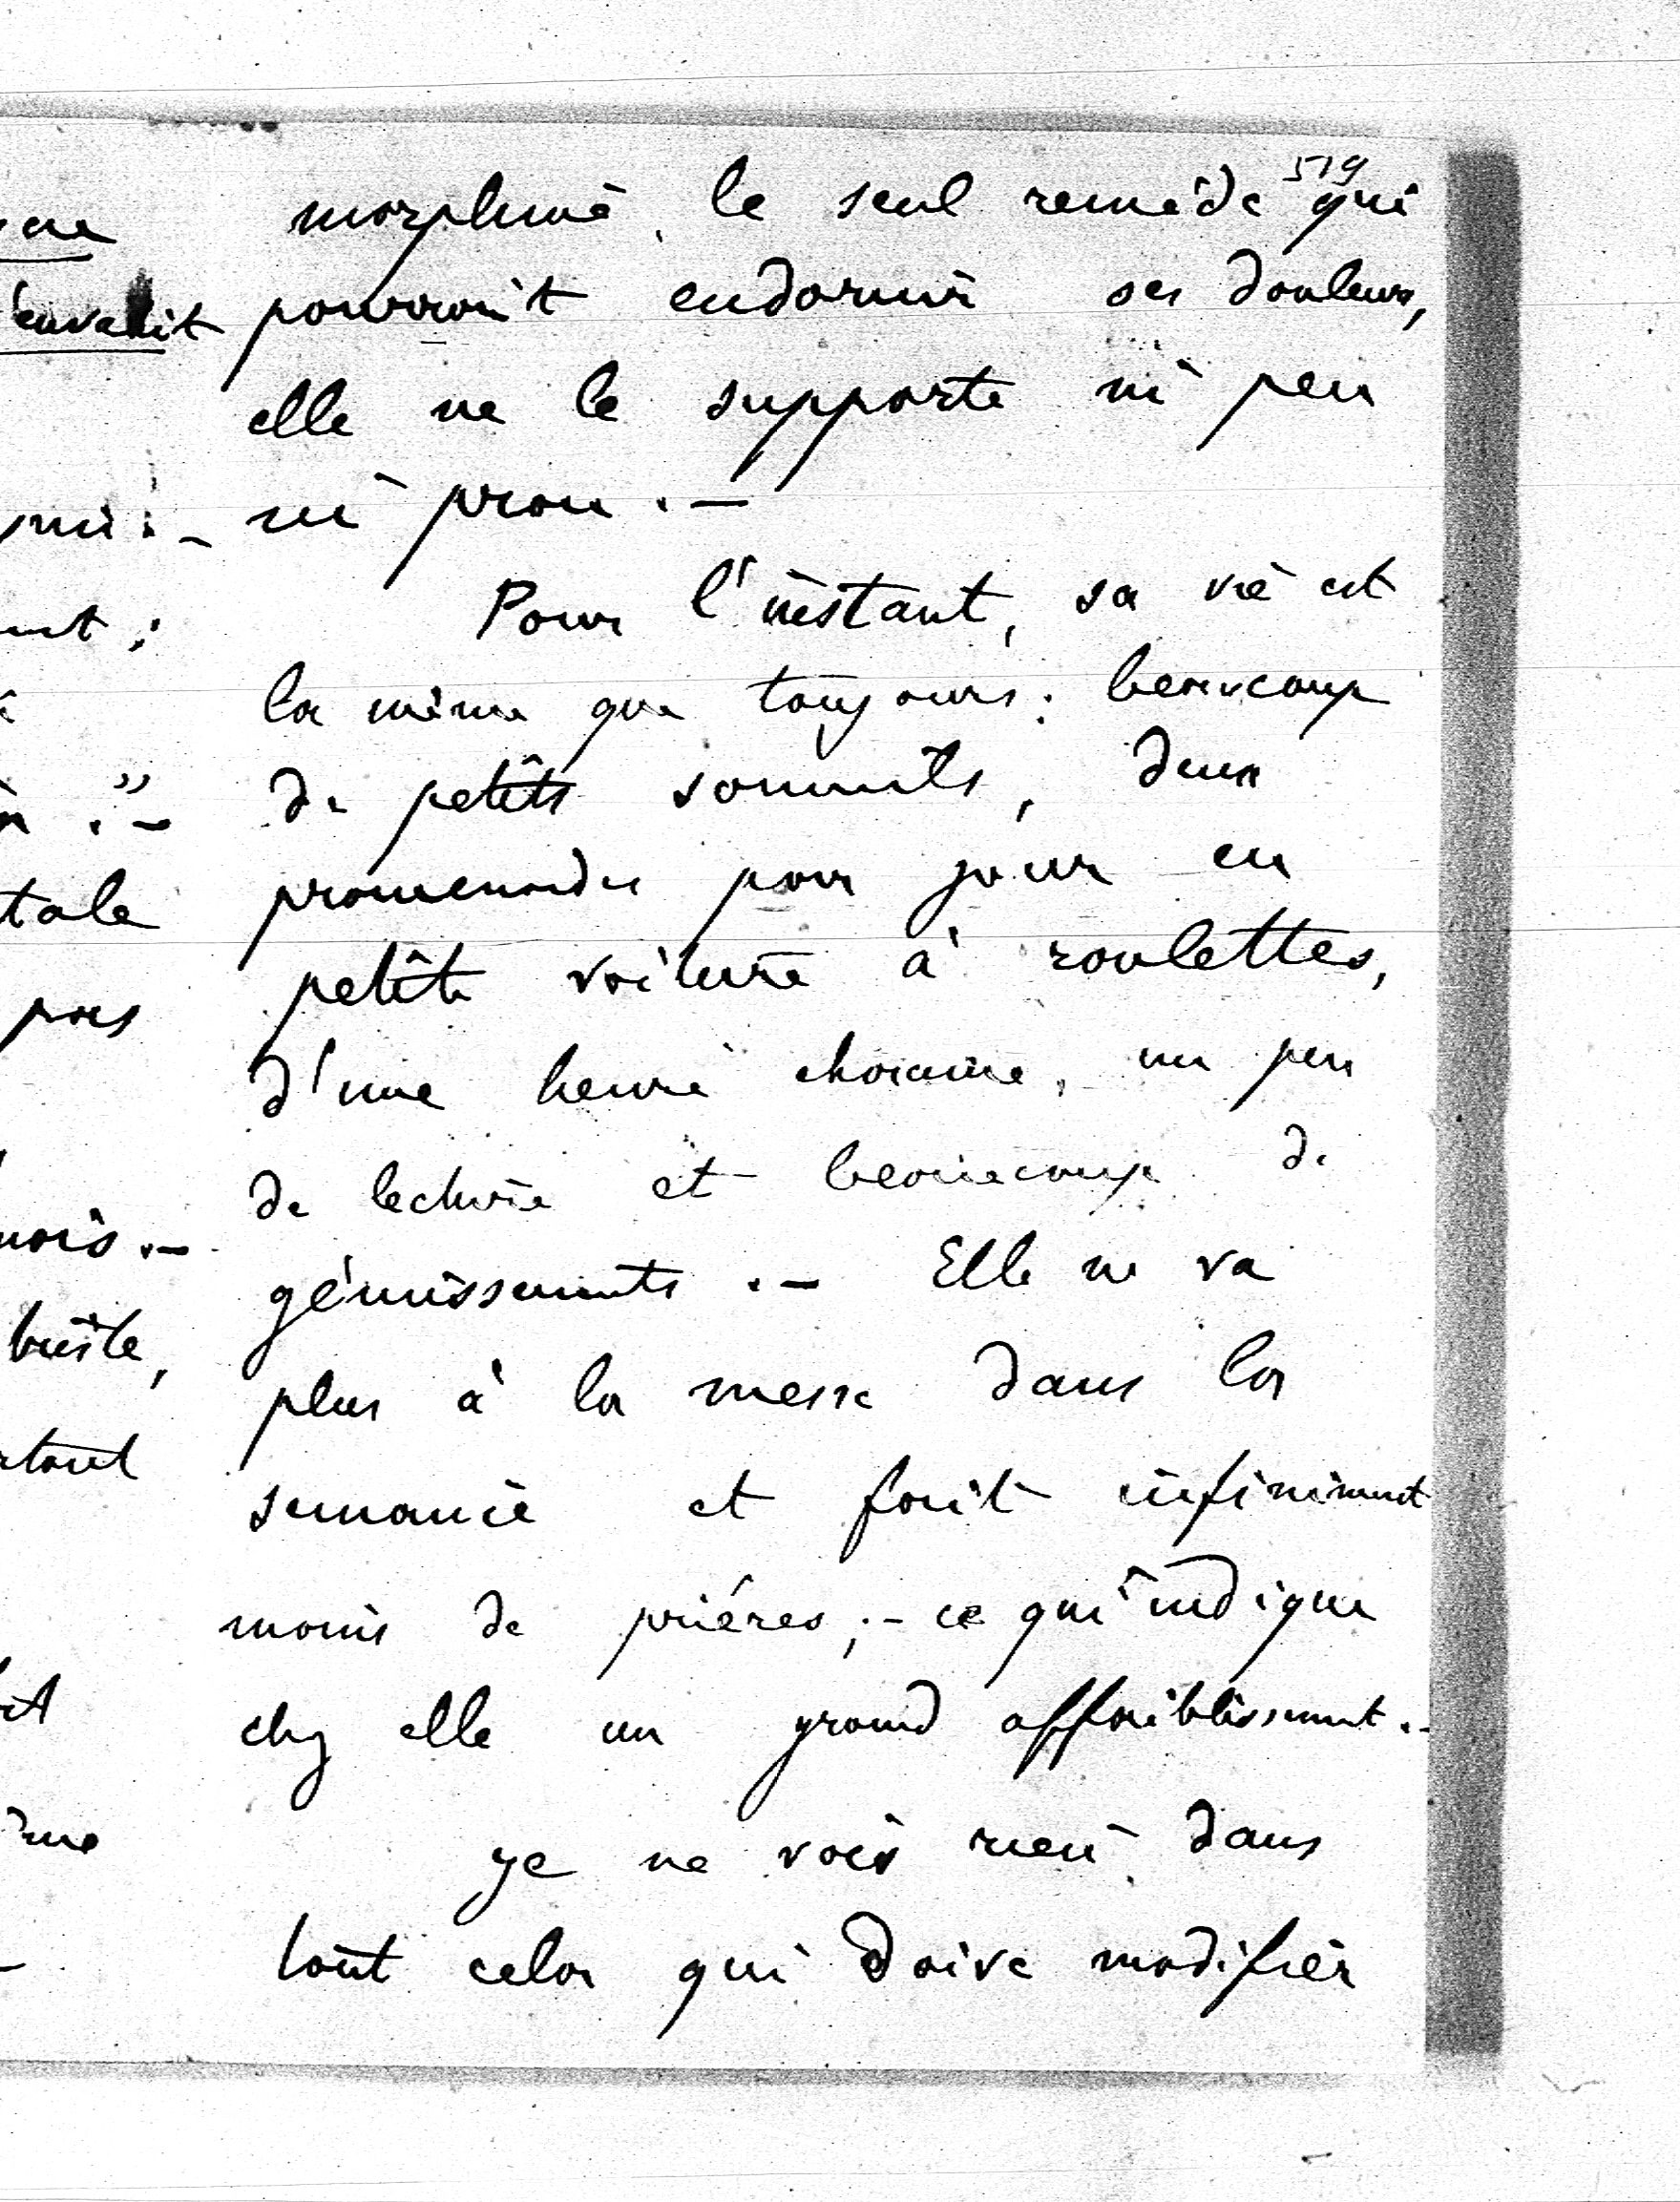 519
morphine, le seul remède qui
pourrait endormir ses douleurs,
elle ne le supporte ni peu
ni prou. —
Pour l'instant, sa vie est
la même que toujours : beaucoup
de petits sommeils, deux
promenades par jour en
petite voiture à roulettes,
d'une heure chacune, un peu
de lecture et beaucoup de
gémissements. — Elle ne va
plus à la messe dans la
semaine et fait infiniment
moins de prières ; — ce qui indique
chez elle un grand affaiblissement. —
Je ne vois rien dans
tout cela qui doive modifier
tale
pas